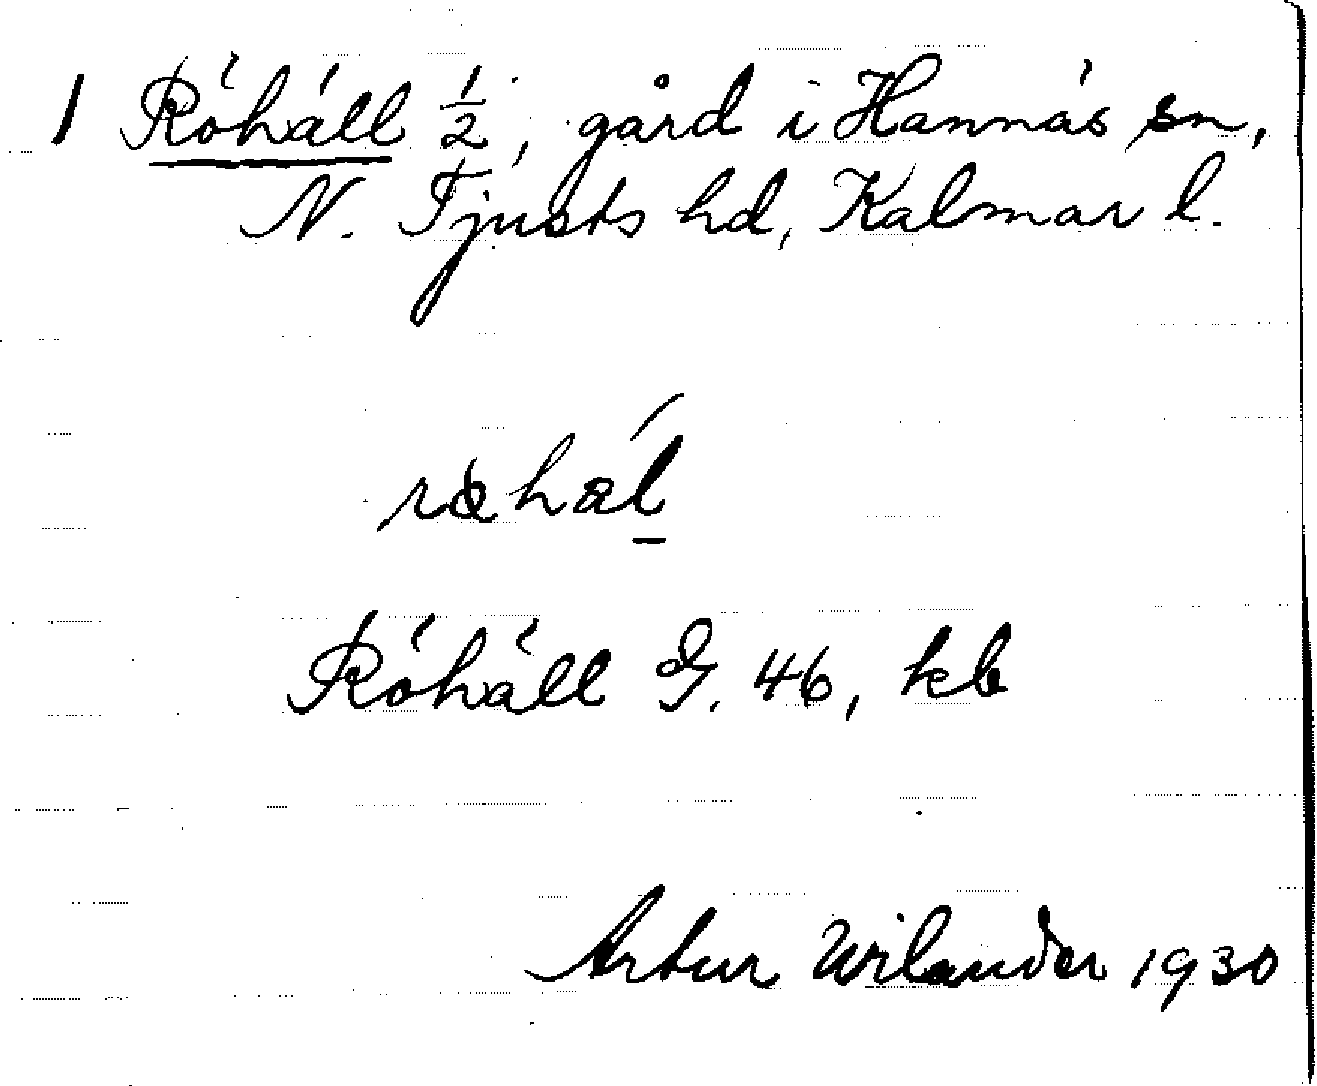 1 Röhäll ½, gård i Hannäs sn,
N. Tjusts hd, Kalmar l.
Röhäll G. 46, kb
Artur Wilander 1930